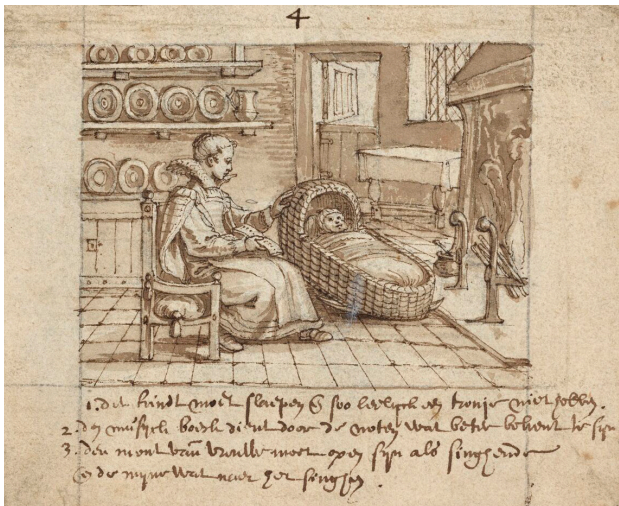 4
1. det kindt moet slaepen & soo leelyck een tronje niet hebben.
2. den musyck boeck dient door de noten wat beter bekent te syn
3. den mont van vrouwe moet open syn als singhende
en de myne wat naer het singhen.